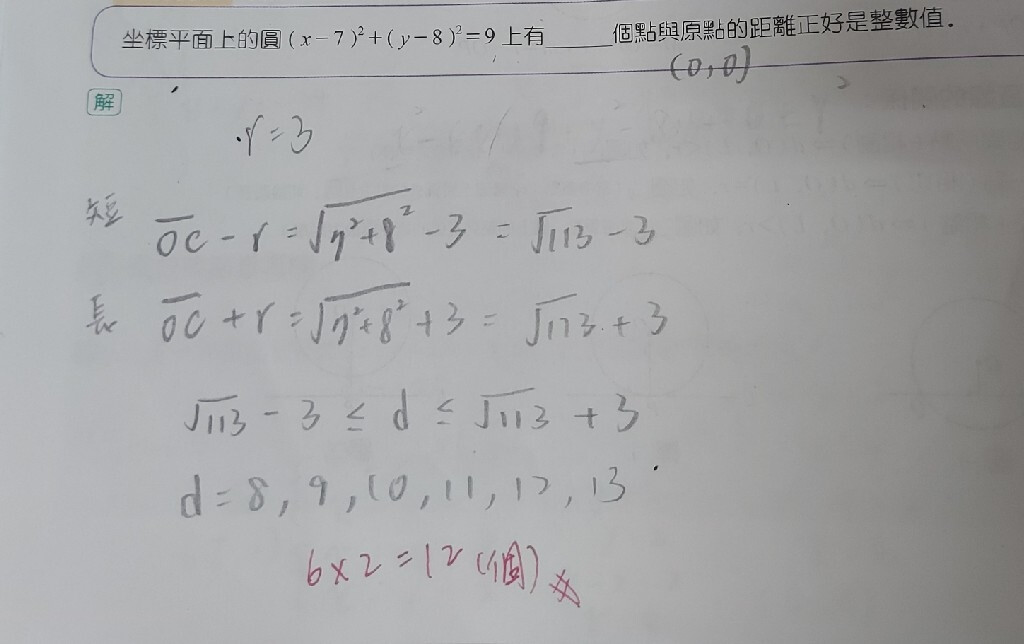 坐標平面上的圓 (x-7)²+(y-8)²=9 上有_____個點與原點的距離正好是整數值.
(0,0)
解
r=3
短 OC - r = √7²+8² - 3 = √113 - 3
長 OC + r = √7²+8² + 3 = √113 + 3
√113 - 3 ≤ d ≤ √113 + 3
d = 8, 9, 10, 11, 12, 13
6×2=12(個)